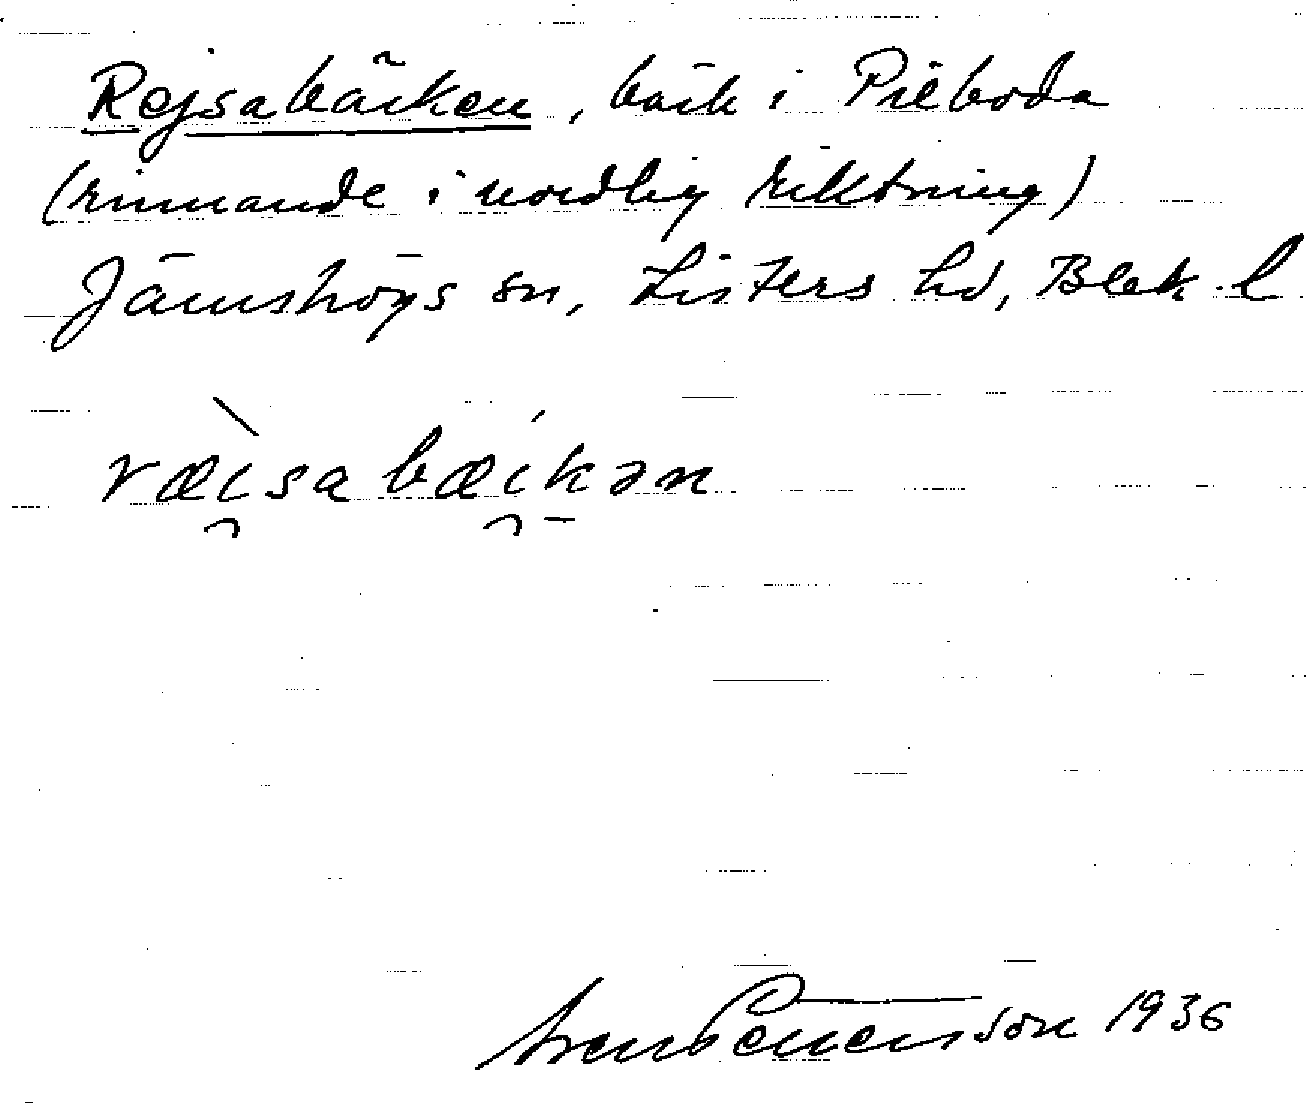 Rejsabäcken, bäck i Pieboda
(rinnande i nordlig riktning)
Jämshögs sn, Listers hd, Blek. l
ræisabæikən
Sven Benson 1936